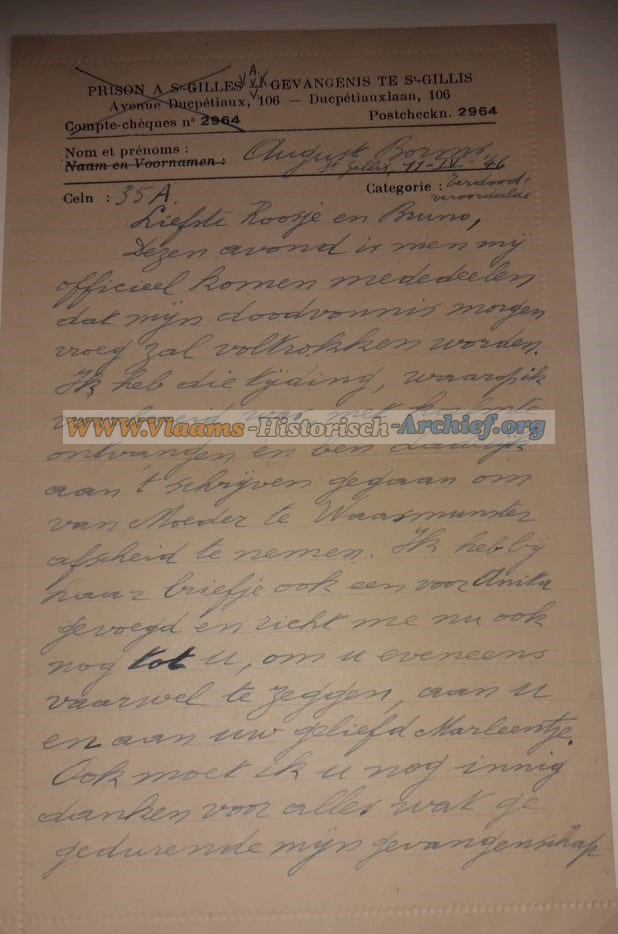 PRISON A St-GILLES V.A.V.V.K GEVANGENIS TE St-GILLIS
Avenue Ducpétiaux, 106 — Ducpétiauxlaan, 106
Compte-chèques no 2964 Postcheckn. 2964
Nom et prénoms : August Borms.
Naam en Voornamen : St Gillis, 11-IV-46
Celn : 35A. Categorie : Terdood-
veroordeelde
Liefste Roosje en Bruno,
Dezen avond is men mij
officieel komen mededeelen
dat mijn doodvonnis morgen
vroeg zal voltrokken worden.
Ik heb die tijding, waarop ik
voorbereid was, met kalmte
www.Vlaams-Historisch-Archief.org
ontvangen en ben dadelijk
aan 't schrijven gegaan om
van Moeder te Waasmunster
afscheid te nemen. Ik heb bij
haar briefje ook een voor Anita
gevoegd en richt me nu ook
nog tot u, om u eveneens
vaarwel te zeggen, aan u
en aan uw geliefd Marleentje.
Ook moet ik u nog innig
danken voor alles wat ge
gedurende mijn gevangenschap